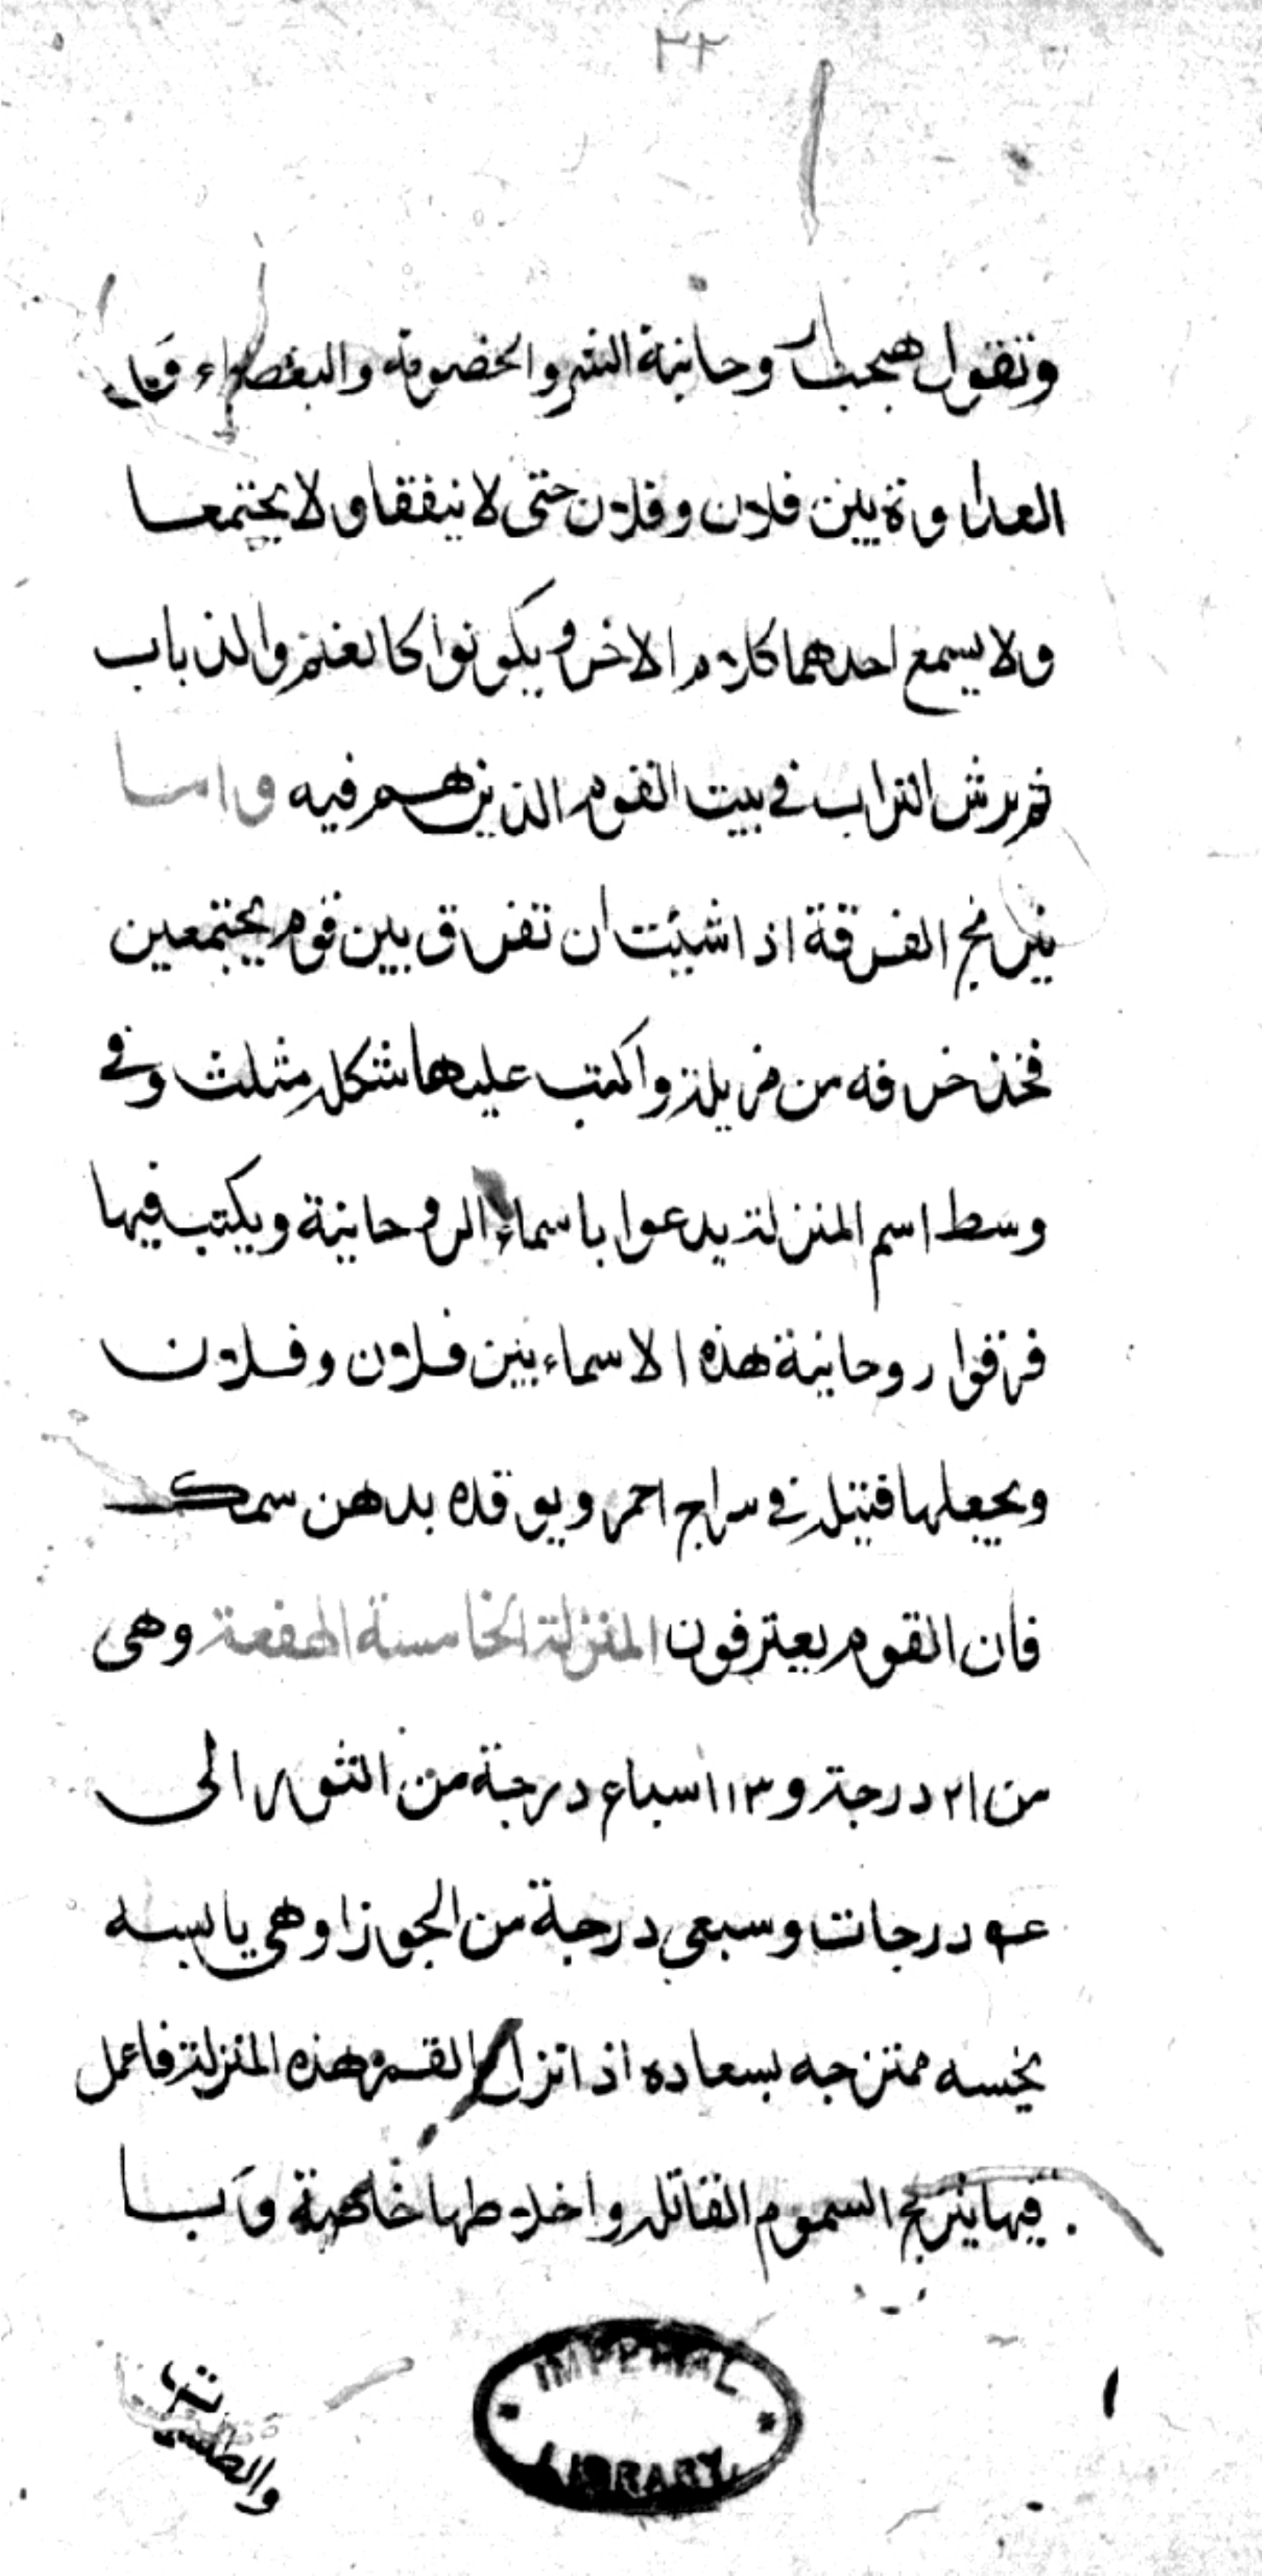 ٣٢
وتقول هيجت روحانية الشر والخصومة والبغضاء
العداوة بين فلان وفلان حتى لا يتفقا ولا يجتمعا
ولا يسمع احدهما كلام الاخر ويكونوا كالغنم والذباب
ثم يرش التراب في بيت القوم الذين هم فيه واما
نيرنج الفرقة اذا شيئت ان تفرق بين قوم يجتمعين
فخذ خرفه من مزبلة واكتب عليها شكل مثلث وفي
وسط اسم المنزلة يدعوا باسماء الروحانية ويكتب فيها
فرقوا روحانية هذه الاسماء بين فلان وفلان
ويجعلها فتيلة في سراج احمر ويوقده بدهن سمك
فان القوم يعترفون المنزلة الخامسة الهقعة وهى
من ٢١ درجة و٣ اسباع درجة من الثور الى
درجات وسبعى درجة من الجوزا وهى يابسه
نحسه ممتزجه بسعاده اذا نزل القمر هذه المنزلة فاعمل
فيها نيرنج السموم القاتلة واخلاطها خاصة
والطلسمات
IMPERIAL LIBRARY